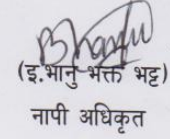 (इ.भानु भक्त भट्ट)
नापी अधिकृत